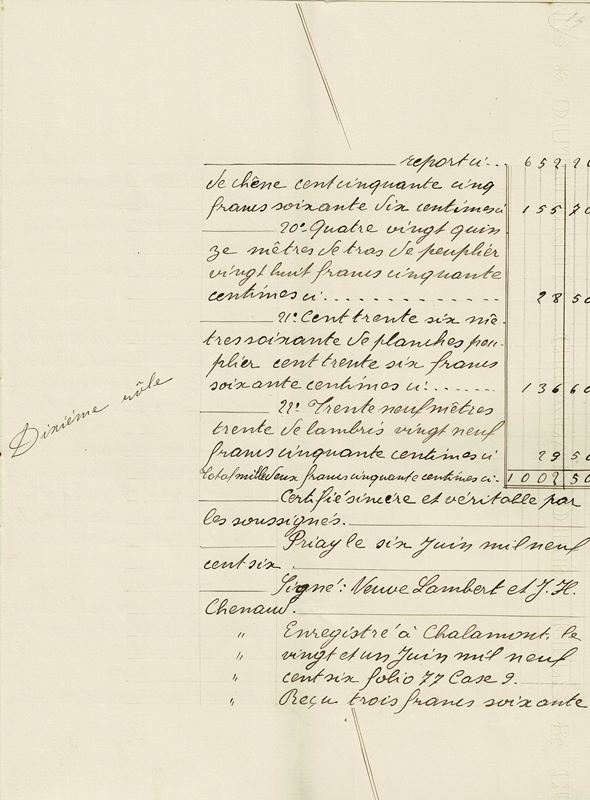 report ci. . . 652 20
de chêne cent cinquante cinq
francs soixante dix centimes ci 155 70
20° Quatre vingt quin
ze mètres de tras de peuplier
vingt huit francs cinquante
centimes ci. . . . . . . . . . . . . 28 50
21° Cent trente six mè-
tres soixante de planches peu-
plier cent trente six francs
soixante centimes ci. . . . . . . 136 60
Dixième rôle
22° Trente neuf mètres
trente de lambris vingt neuf
francs cinquante centimes ci 29 50
Total mille deux francs cinquante centimes ci. 1002 50
Certifié sincère et véritable par
les soussignés.
Priay le six Juin mil neuf
cent six.
Signé: Veuve Lambert et J. H.
Chenaud.
" Enregistré à Chalamont, le
" vingt et un Juin mil neuf
" cent six folio 77 Case 9.
" Reçu trois francs soixante